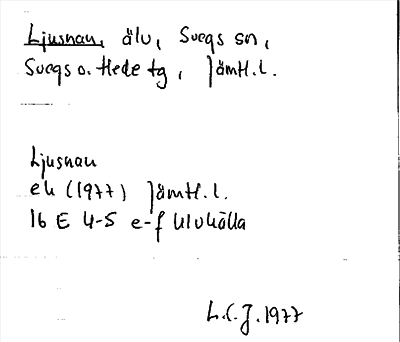 Ljusnan, älv, Svegs sn,
Svegs o. Hede tg, Jämtl.l.
Ljusnan
ek (1977) Jämtl.l.
16 E 4-5 e-f Ulvkälla
L.C.J. 1977